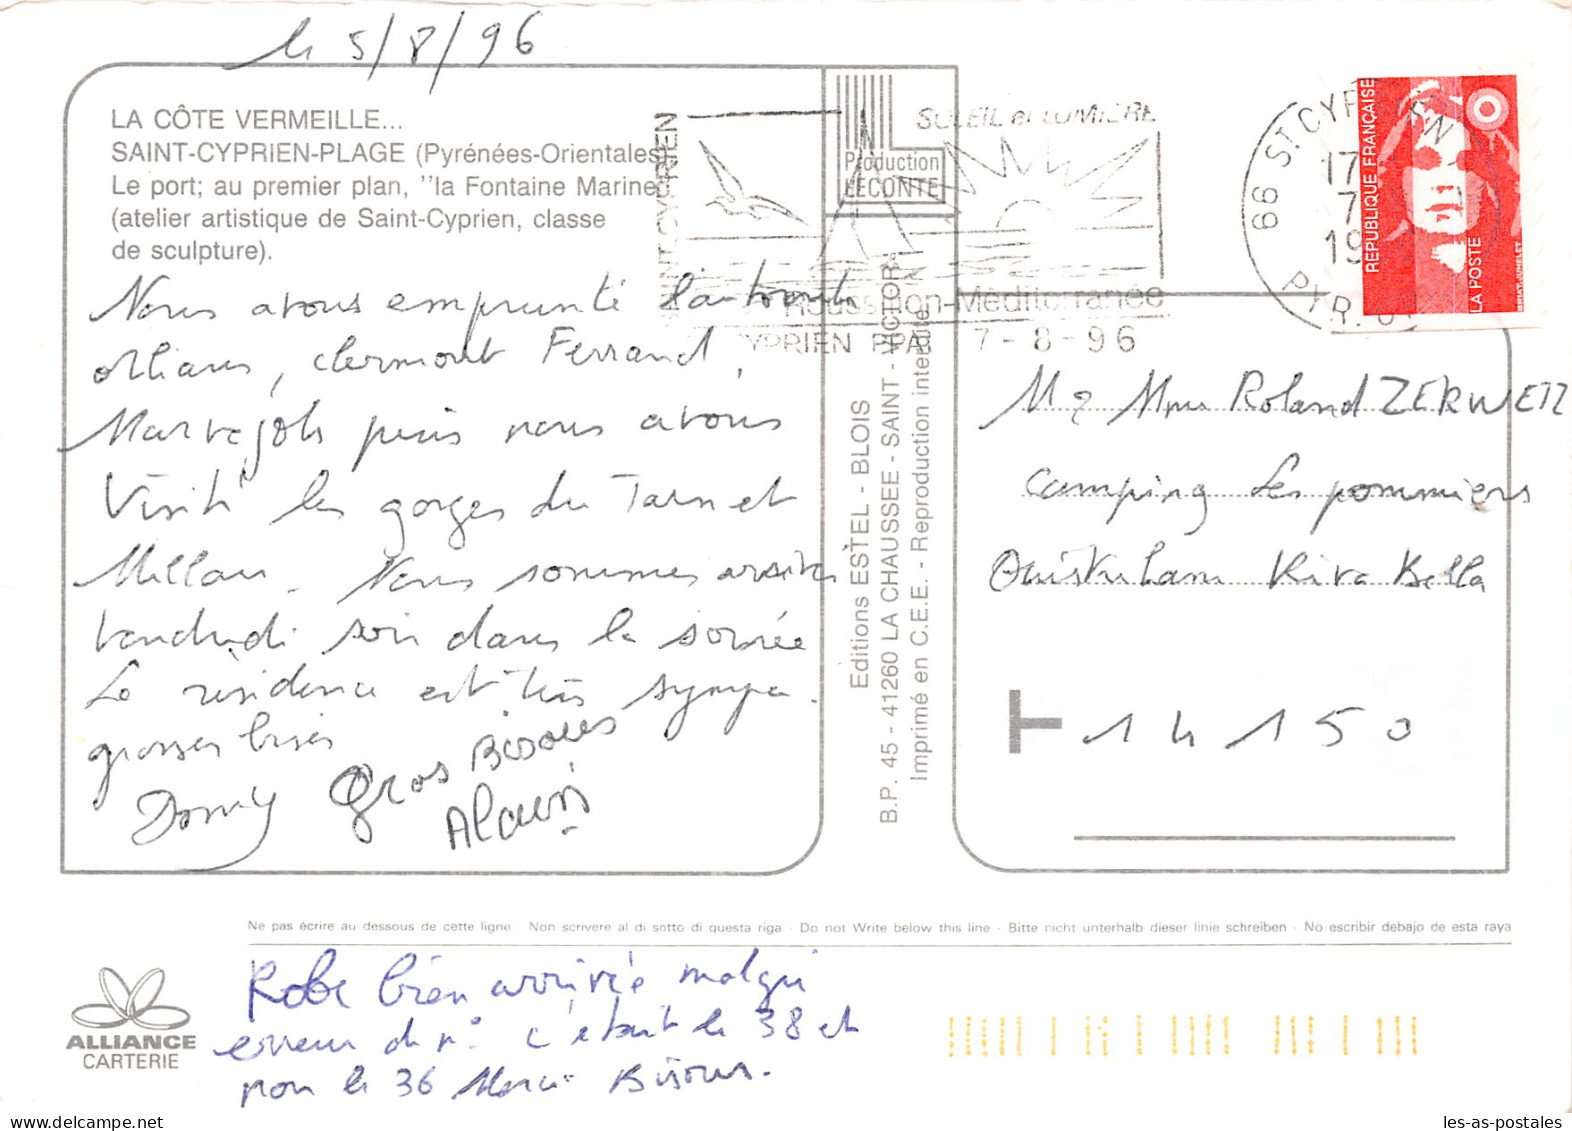 le 5/8/96
LA CÔTE VERMEILLE...
SAINT-CYPRIEN-PLAGE (Pyrénées-Orientales)
Le port; au premier plan, "la Fontaine Marine"
(atelier artistique de Saint-Cyprien, classe
de sculpture).
Nous avons emprunté l'autoroute
Orléans, Clermont Ferrand,
Marvejols puis nous avons
visité les gorges du Tarn et
Millau. Nous sommes arrivés
vendredi soir dans la soirée
La résidence est très sympa.
grosses bises
Domy
Gros Bisous
Alain
Production
LECONTE
SOLEIL et LUMIERE
ST CYPRIEN
Roussillon-Méditerranée
CYPRIEN PPAL 7-8-96
66 ST CYPRIEN
17
7
19
PYR. O
REPUBLIQUE FRANÇAISE
LA POSTE
BRIAT. JUMELET
Editions ESTEL - BLOIS
B.P. 45 - 41260 LA CHAUSSEE - SAINT - VICTOR
Imprimé en C.E.E. - Reproduction interdite
M & Mme Roland ZERWETZ
Camping Les pommiers
Ouistreham Riva Bella
T 14150
Ne pas écrire au dessous de cette ligne - Non scrivere al di sotto di questa riga - Do not Write below this line - Bitte nicht unterhalb dieser linie schreiben - No escribir debajo de esta raya
Robe bien arrivée malgré
erreur du n° c'était le 38 et
non le 36 Merci Bisous.
ALLIANCE
CARTERIE
les-as-postales